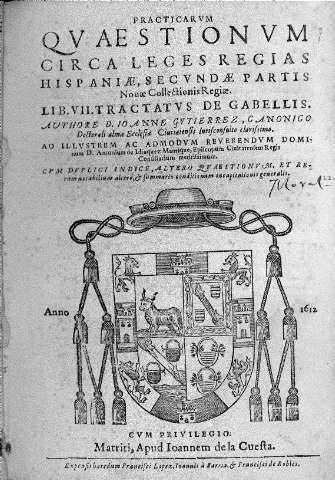 PRACTICARVM
QVAESTIONVM
CIRCA LEGES REGIAS
HISPANIÆ, SECVNDÆ PARTIS
Nouæ Collectionis Regiæ.
LIB. VII. TRACTATVS DE GABELLIS.
AVTHORE D. IOANNE GVTIERREZ, CANONICO
Doctorali almæ Ecclesiæ Ciuitatensis Iurisconsulto clarissimo.
AD ILLVSTREM AC ADMODVM REVERENDVM DOMI-
num D. Antonium de Idiaquez Manrique, Episcopum Ciuitatensem Regis
Consiliarium meritissimum.
CVM DVPLICI INDICE, ALTERO QVAESTIONVM, ET RE-
rum notabilium altero, & summariis conditionum in capitionis generalis.
Anno 1612
CVM PRIVILEGIO.
Matriti, Apud Ioannem de la Cuesta.
Expensis hæredum Francisci Lopez, Ioannis à Barma, & Francisci de Robles.